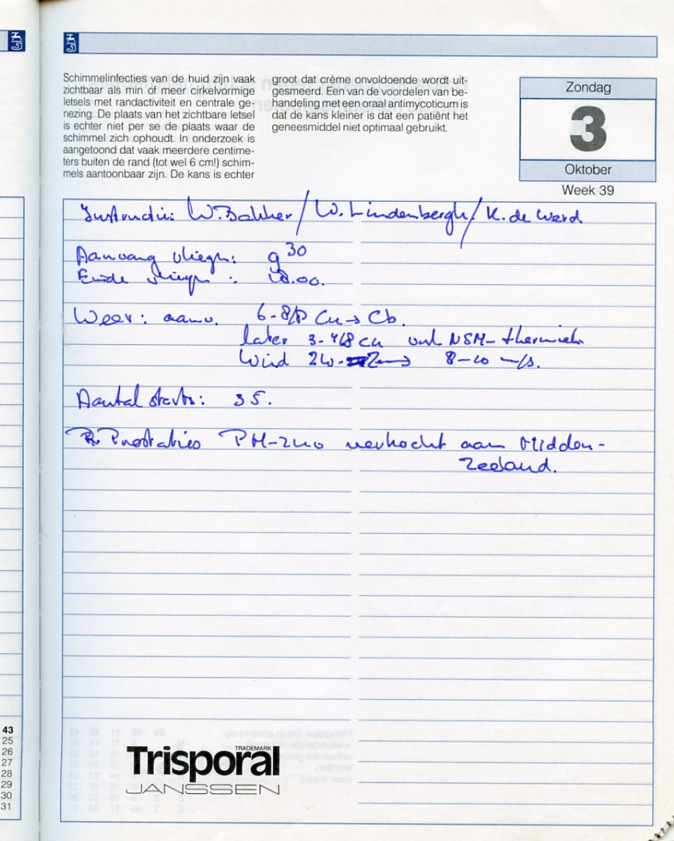 Schimmelinfecties van de huid zijn vaak
zichtbaar als min of meer cirkelvormige
letsels met randactiviteit en centrale ge-
nezing. De plaats van het zichtbare letsel
is echter niet per se de plaats waar de
schimmel zich ophoudt. In onderzoek is
aangetoond dat vaak meerdere centime-
ters buiten de rand (tot wel 6 cm!) schim-
mels aantoonbaar zijn. De kans is echter
groot dat crème onvoldoende wordt uit-
gesmeerd. Een van de voordelen van be-
handeling met een oraal antimycoticum is
dat de kans kleiner is dat een patiënt het
geneesmiddel niet optimaal gebruikt.
Zondag
3
Oktober
Week 39
Instructie: W. Bakker / W. Lindenbergh / K. de Werd
Aanvang vliegen: 9 30
Einde vliegen: 18.00.
Weer: aanv. 6-8/8 Cu → Cb.
later 3-4/8 cu onb. NSM-thermiek
Wind ZW. → 8-10 m/s.
Aantal starts: 35.
Prestaties PH-2110 verkocht aan Midden-
Zeeland.
Trisporal
TRADEMARK
JANSSEN
43
25
26
27
28
29
30
31